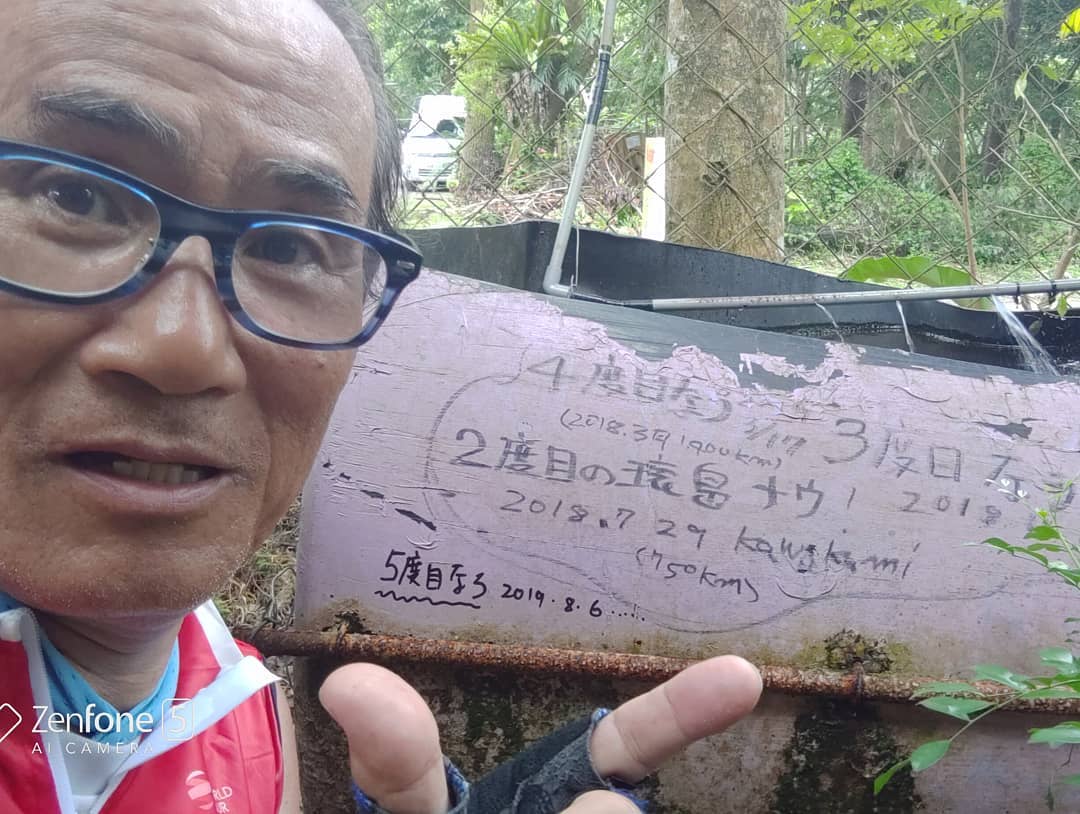 4度目なう 3/17
(2018.3月 900km)
3度目なう
2度目の環島ナウ!
2018
2018.7 29 kawakami
(750km)
5度目なう 2019.8.6....!
Zenfone 5
AI CAMERA